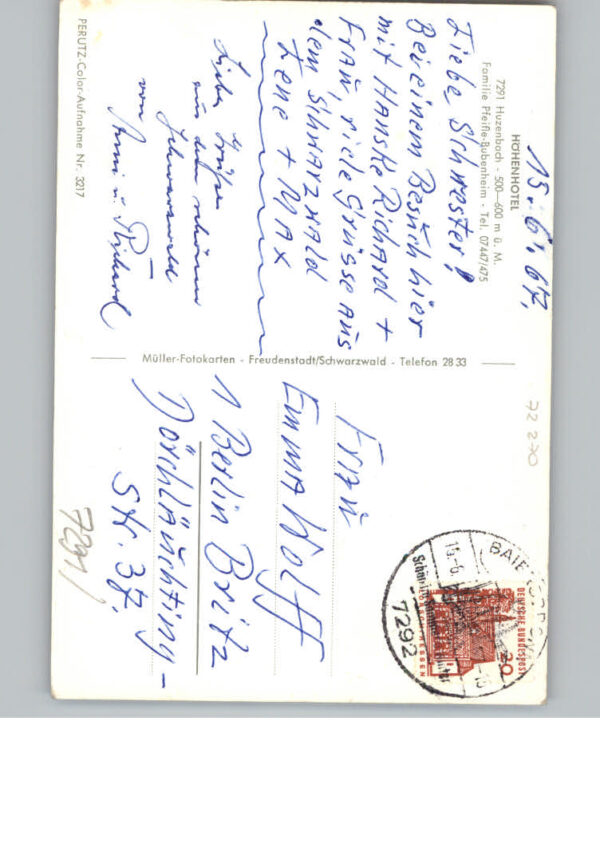 HÖHENHOTEL
7291 Huzenbach - 500—600 m ü. M.
Familie Pfeifle-Bubenheim - Tel. 07447/475
15. 6. 67.
Liebe Schwester!
Bei einem Besuch hier
mit Hanske Richard +
Frau, viele Grüsse aus
dem Schwarzwald
Lene + Max
Liebe Grüße
aus dem schönen
Schwarzwald
von
u. Richard
PERUTZ-Color-Aufnahme Nr. 3217
Müller-Fotokarten - Freudenstadt/Schwarzwald - Telefon 28 33
Frau
Emma Wolff
1 Berlin Britz
Dörchläuchting-
Str. 37.
7291
72 270
7292
DEUTSCHE BUNDESPOST
20